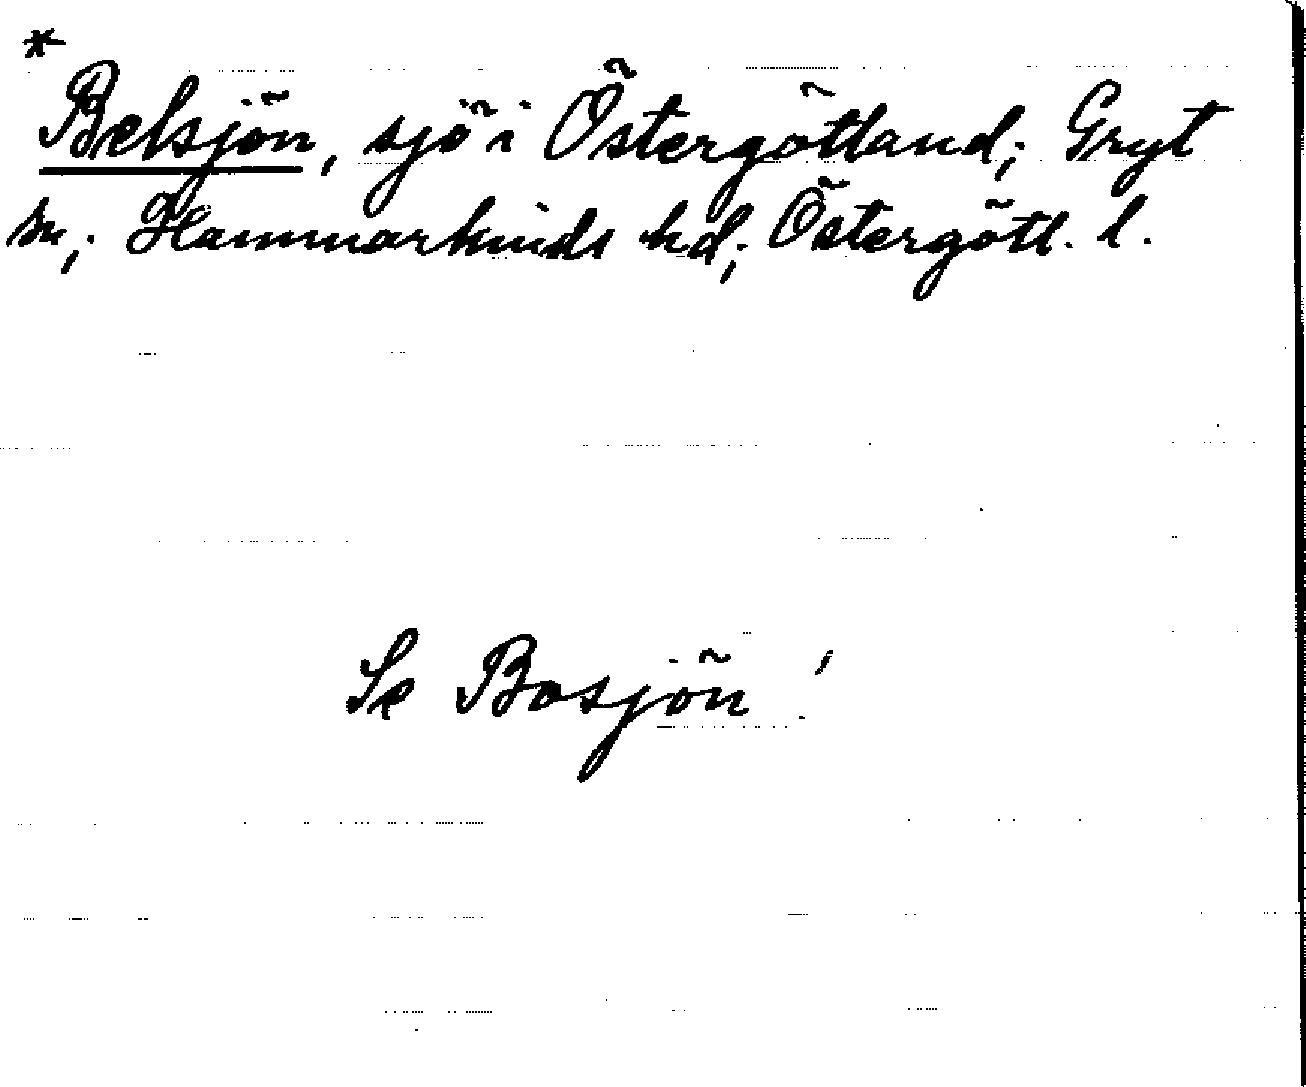 *
Belsjön, sjö i Östergötland; Gryt
sn; Hammarkinds hd; Östergötl. l.
Se Bosjön!